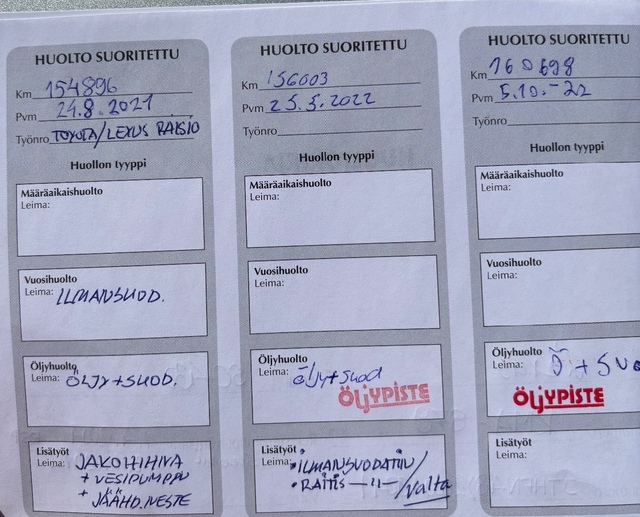 HUOLTO SUORITETTU
Km 154896
Pvm 24.8.2021
Työnro TOYOTA/LEXUS RAISIO
Huollon tyyppi
Määräaikaishuolto
Leima:
Vuosihuolto
Leima: ILMANSUOD.
Öljyhuolto
Leima: ÖLJY + SUOD.
Lisätyöt
Leima: JAKOHIHNA
+ VESIPUMPPU
+ JÄÄHD.NESTE
HUOLTO SUORITETTU
Km 156003
Pvm 25.5.2022
Työnro
Huollon tyyppi
Määräaikaishuolto
Leima:
Vuosihuolto
Leima:
Öljyhuolto
Leima: öljy+suod
ÖLJYPISTE
Lisätyöt
Leima: • ILMANSUODATIN/
• RAITIS —11— /Valta
HUOLTO SUORITETTU
Km 160698
Pvm 5.10.-22
Työnro
Huollon tyyppi
Määräaikaishuolto
Leima:
Vuosihuolto
Leima:
Öljyhuolto
Leima: Ö + SUO
ÖLJYPISTE
Lisätyöt
Leima: